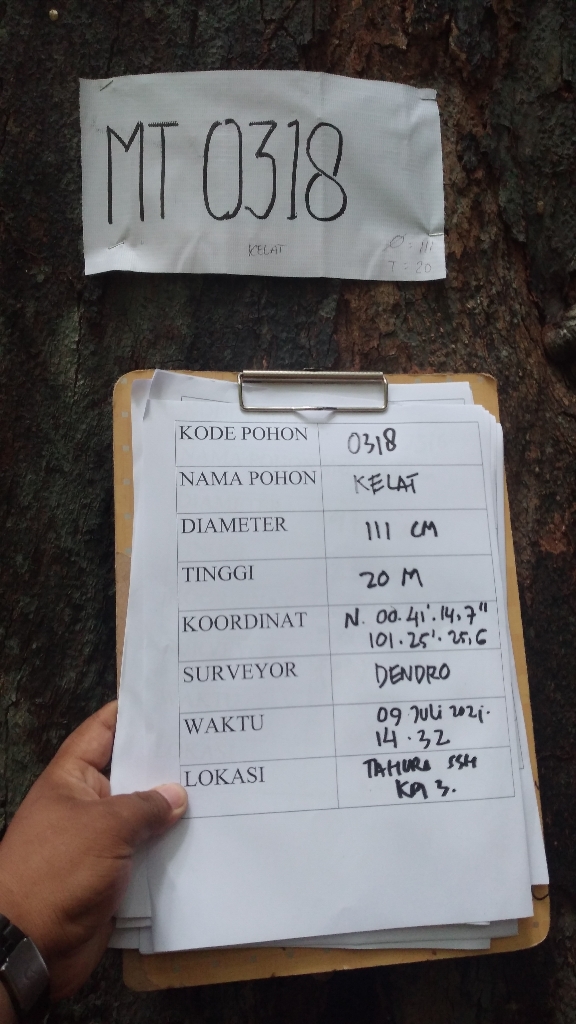 MT 0318
KELAT
D = 111
T = 20
KODE POHON 0318
NAMA POHON KELAT
DIAMETER 111 CM
TINGGI 20 M
KOORDINAT N. 00.41'.14,7"
101.25'.25,6
SURVEYOR DENDRO
WAKTU 09 Juli 2021.
14.32
LOKASI TAHURA SSH